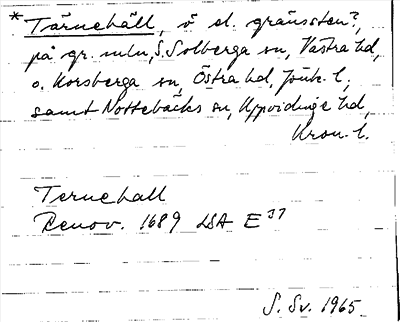 * Tärnehäll, ö el. gränssten?,
på gr. mln, S. Solberga sn, Västra hd,
o. Korsberga sn, Östra hd, Jönk. l.,
samt Nottebäcks sn, Uppvidinge hd,
Kron. l.
Ternehall
Renov. 1689 LSA E 37
S. Sv. 1965.